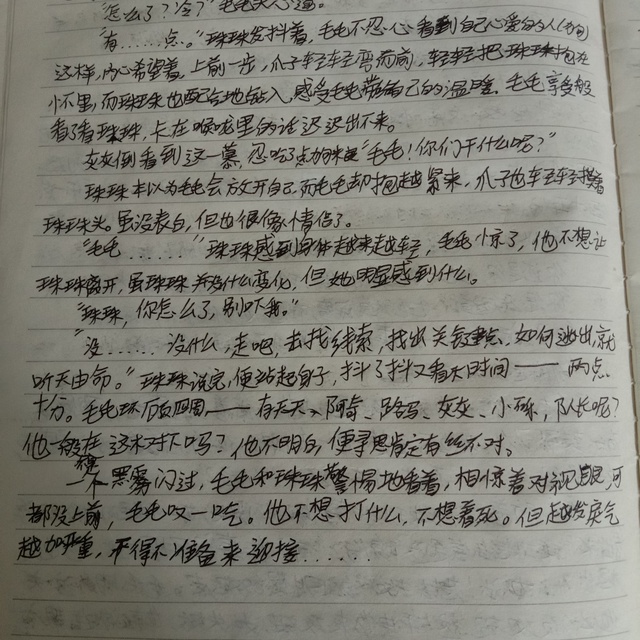 "怎么了？冷？"毛毛关心道。
"有……点。"珠珠发抖着，毛毛不忍心看到自己心爱的人
这样，内心希望着，上前一步，爪子轻轻弯而前，轻轻把珠珠抱在
怀里，而珠珠也配合地钻入，感受毛毛带给自己的温暖。毛毛享受般
看了看珠珠，卡在喉咙里的话迟迟出不来。
灰灰倒看到这一慕，忍"毛毛！你们干什么呢？"
珠珠本以为毛会放开自己而毛毛却抱越紧来，爪子也轻轻摸着
珠珠头。虽没表白，但也很像情侣了。
"毛毛……"珠珠感到身体越来越轻，毛毛惊了，他不想让
珠珠离开，虽珠珠并没什么变化，但她明显感到什么。
"珠珠，你怎么了，别吓我。"
"没……没什么，走吧，去找线索，找出关键点，如何逃出就
听天由命。"珠珠说完，便站起身子，抖了抖又看木时间——两点
十分。毛毛环顾四周——有天天、阿奇、路马、灰灰、小砾，队长呢？
他一般在这木对下吗？他不明白，便寻思肯定有丝不对。
一个黑雾闪过，毛毛和珠珠警惕地看着，相惊着对视眼，可
都没上前，毛毛叹一吃。他不想打什么，不想看死。但越发戾气
越加严重，不得不准备来迎接……